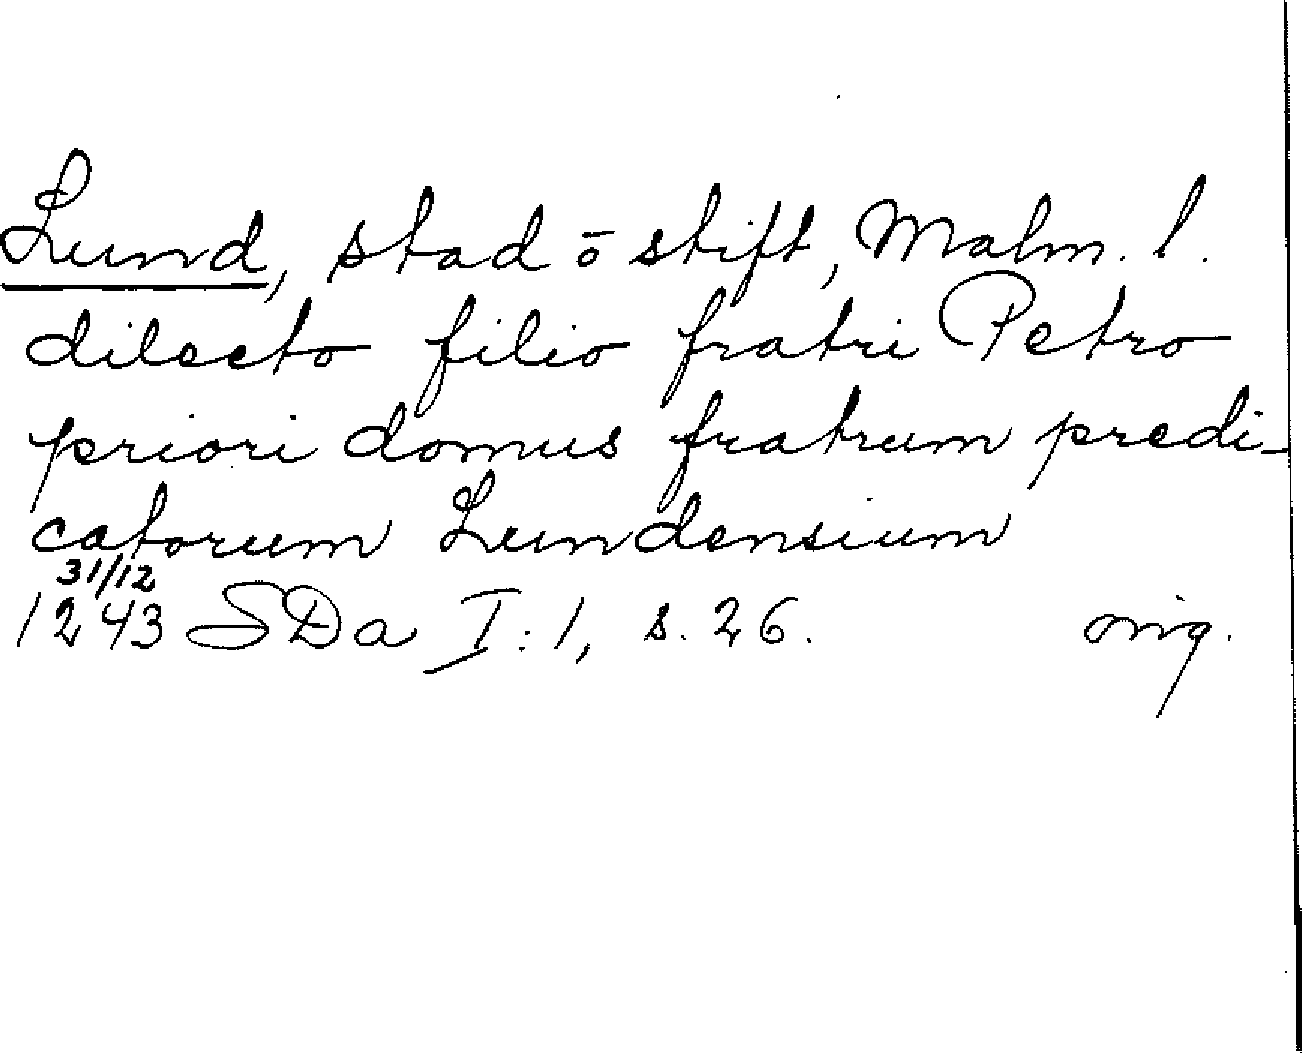 Lund, stad ō stift, Malm. l.
dilecto filio fratri Petro
priori domus fratrum predi-
catorum Lundensium
31/12
1243 SDa I:1, s. 26. orig.